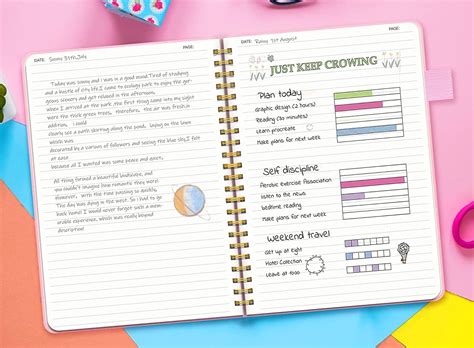 DATE: Sunny 31th.July PAGE:
Today was sunny and I was in a good mood.Tired of studying
and a hustle of city life,I came to ecology park to enjoy the gor-
geng scenery and get relaxed in the afternoon.
when I arrived at the park ,the first thing came my my sight
were the thick green trees, therefore, the air was fresh an
addition, I could
clearly see a path skating along the pond, laying on the lawn
which
was decorated by a variety of followers and seeing the blue sky,I felt
at ease
because all I wanted was some peace and quiet,
All thing formed a beautiful landscape, and
you couldn't imagine how romantic they were!
However, with the time passing in the sky, I was
back home! I would never forget such a memo-
rable experience, which was really beyond
description
DATE: Rainy 1st August PAGE:
JUST KEEP CROWING
Plan today
graphic design (2 hours)
Reading (30 minutes)
Learn procreate
Make plans for next week
Self discipline
Aerobic exercise Association
listen to the news
bedtime reading
Make plans for next week
Weekend travel
Get up at eight
Hotel Collection
Leave at food